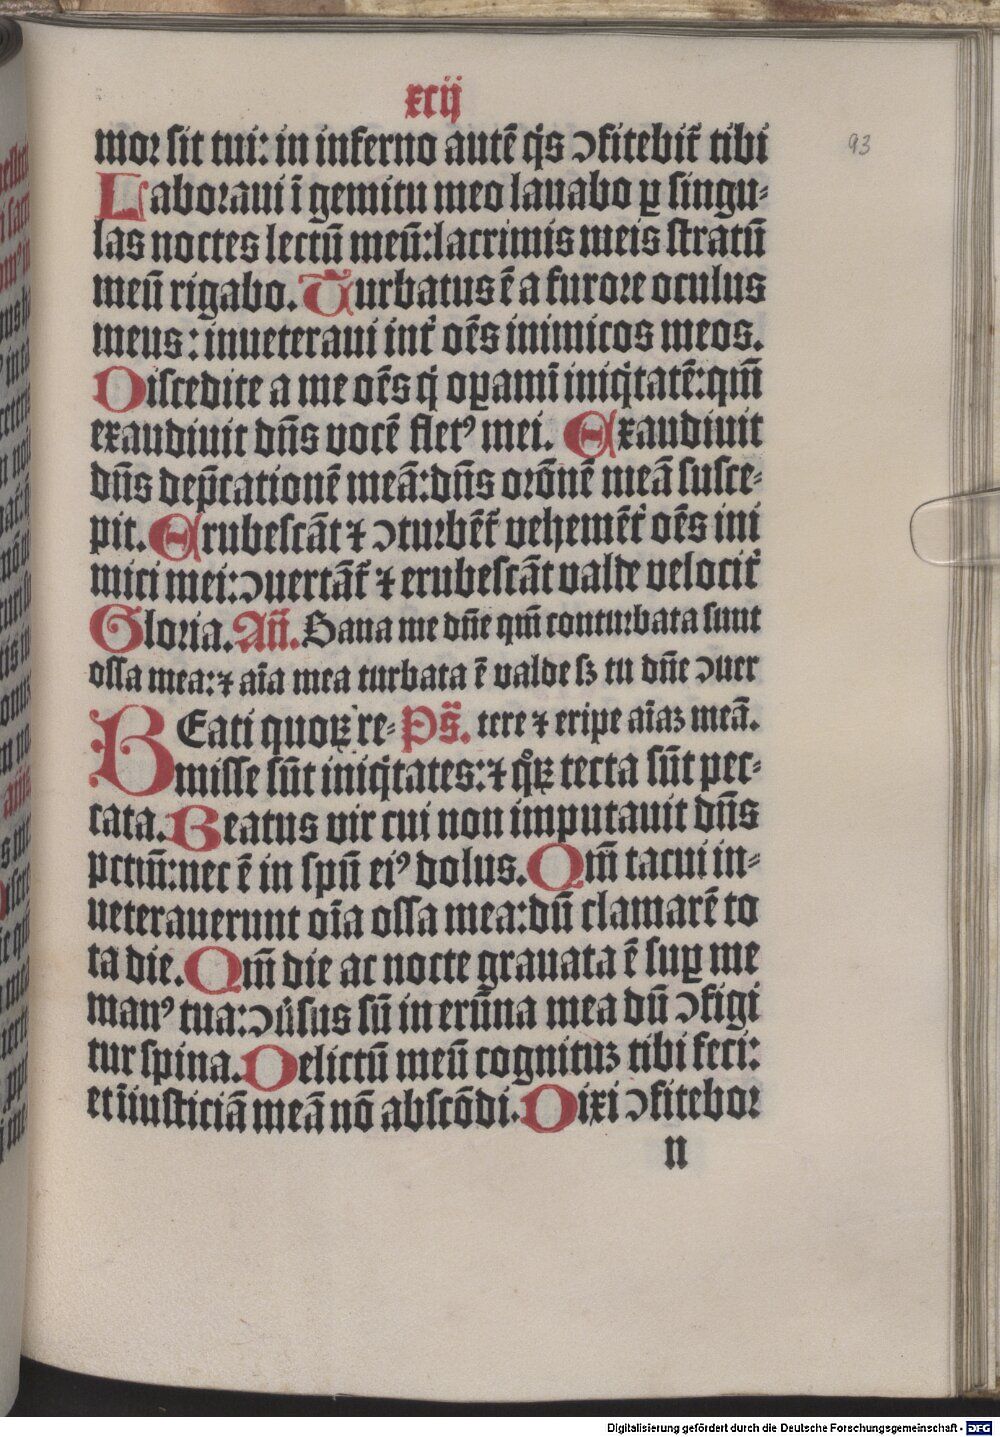 xcij
93
moꝛ sit tui: in inferno autē q̇s ↄfitebit᷑ tibi
Laboꝛaui ī gemitu meo lauabo ꝑ singu⸗
las noctes lectū meū: lacrimis meis stratū
meū rigabo. Turbatus ē a furoꝛe oculus
meus: inueteraui int᷑ oēs inimicos meos.
Discedite a me oēs q̇ oꝑamī iniq̇tatē: qm̄
exaudiuit dn̄s vocē flet⁹ mei. Exaudiuit
dn̄s dep̄cationē meā: dn̄s oꝛōnē meā susce⸗
pit. Erubescāt ⁊ ↄturbēt᷑ vehemēt᷑ oēs ini
mici mei: ↄuertāt᷑ ⁊ erubescāt valde velocit᷑
Gloꝛia. Añ. Sana me dn̄e qm̄ conturbata sunt
ossa mea: ⁊ aīa mea turbata ē valde sꝫ tu dn̄e ↄuer
BEati quoꝝ re⸗ Ps̄. tere ⁊ eripe aīaꝫ meā.
misse sūt iniq̇tates: ⁊ qͦꝝ tecta sūt pec⸗
cata. Beatus vir cui non imputauit dn̄s
pctm̄: nec ē in spū ei⁹ dolus. Qm̄ tacui in⸗
ueterauerunt oīa ossa mea: dū clamarē to
ta die. Qm̄ die ac nocte grauata ē suꝑ me
man⁹ tua: ↄu᷑sus sū in erūna mea dū ↄfigi
tur spina. Delictū meū cognituꝫ tibi feci:
et īiusticiā meā nō abscōdi. Dixi ↄfiteboꝛ
n
Digitalisierung gefördert durch die Deutsche Forschungsgemeinschaft - DFG